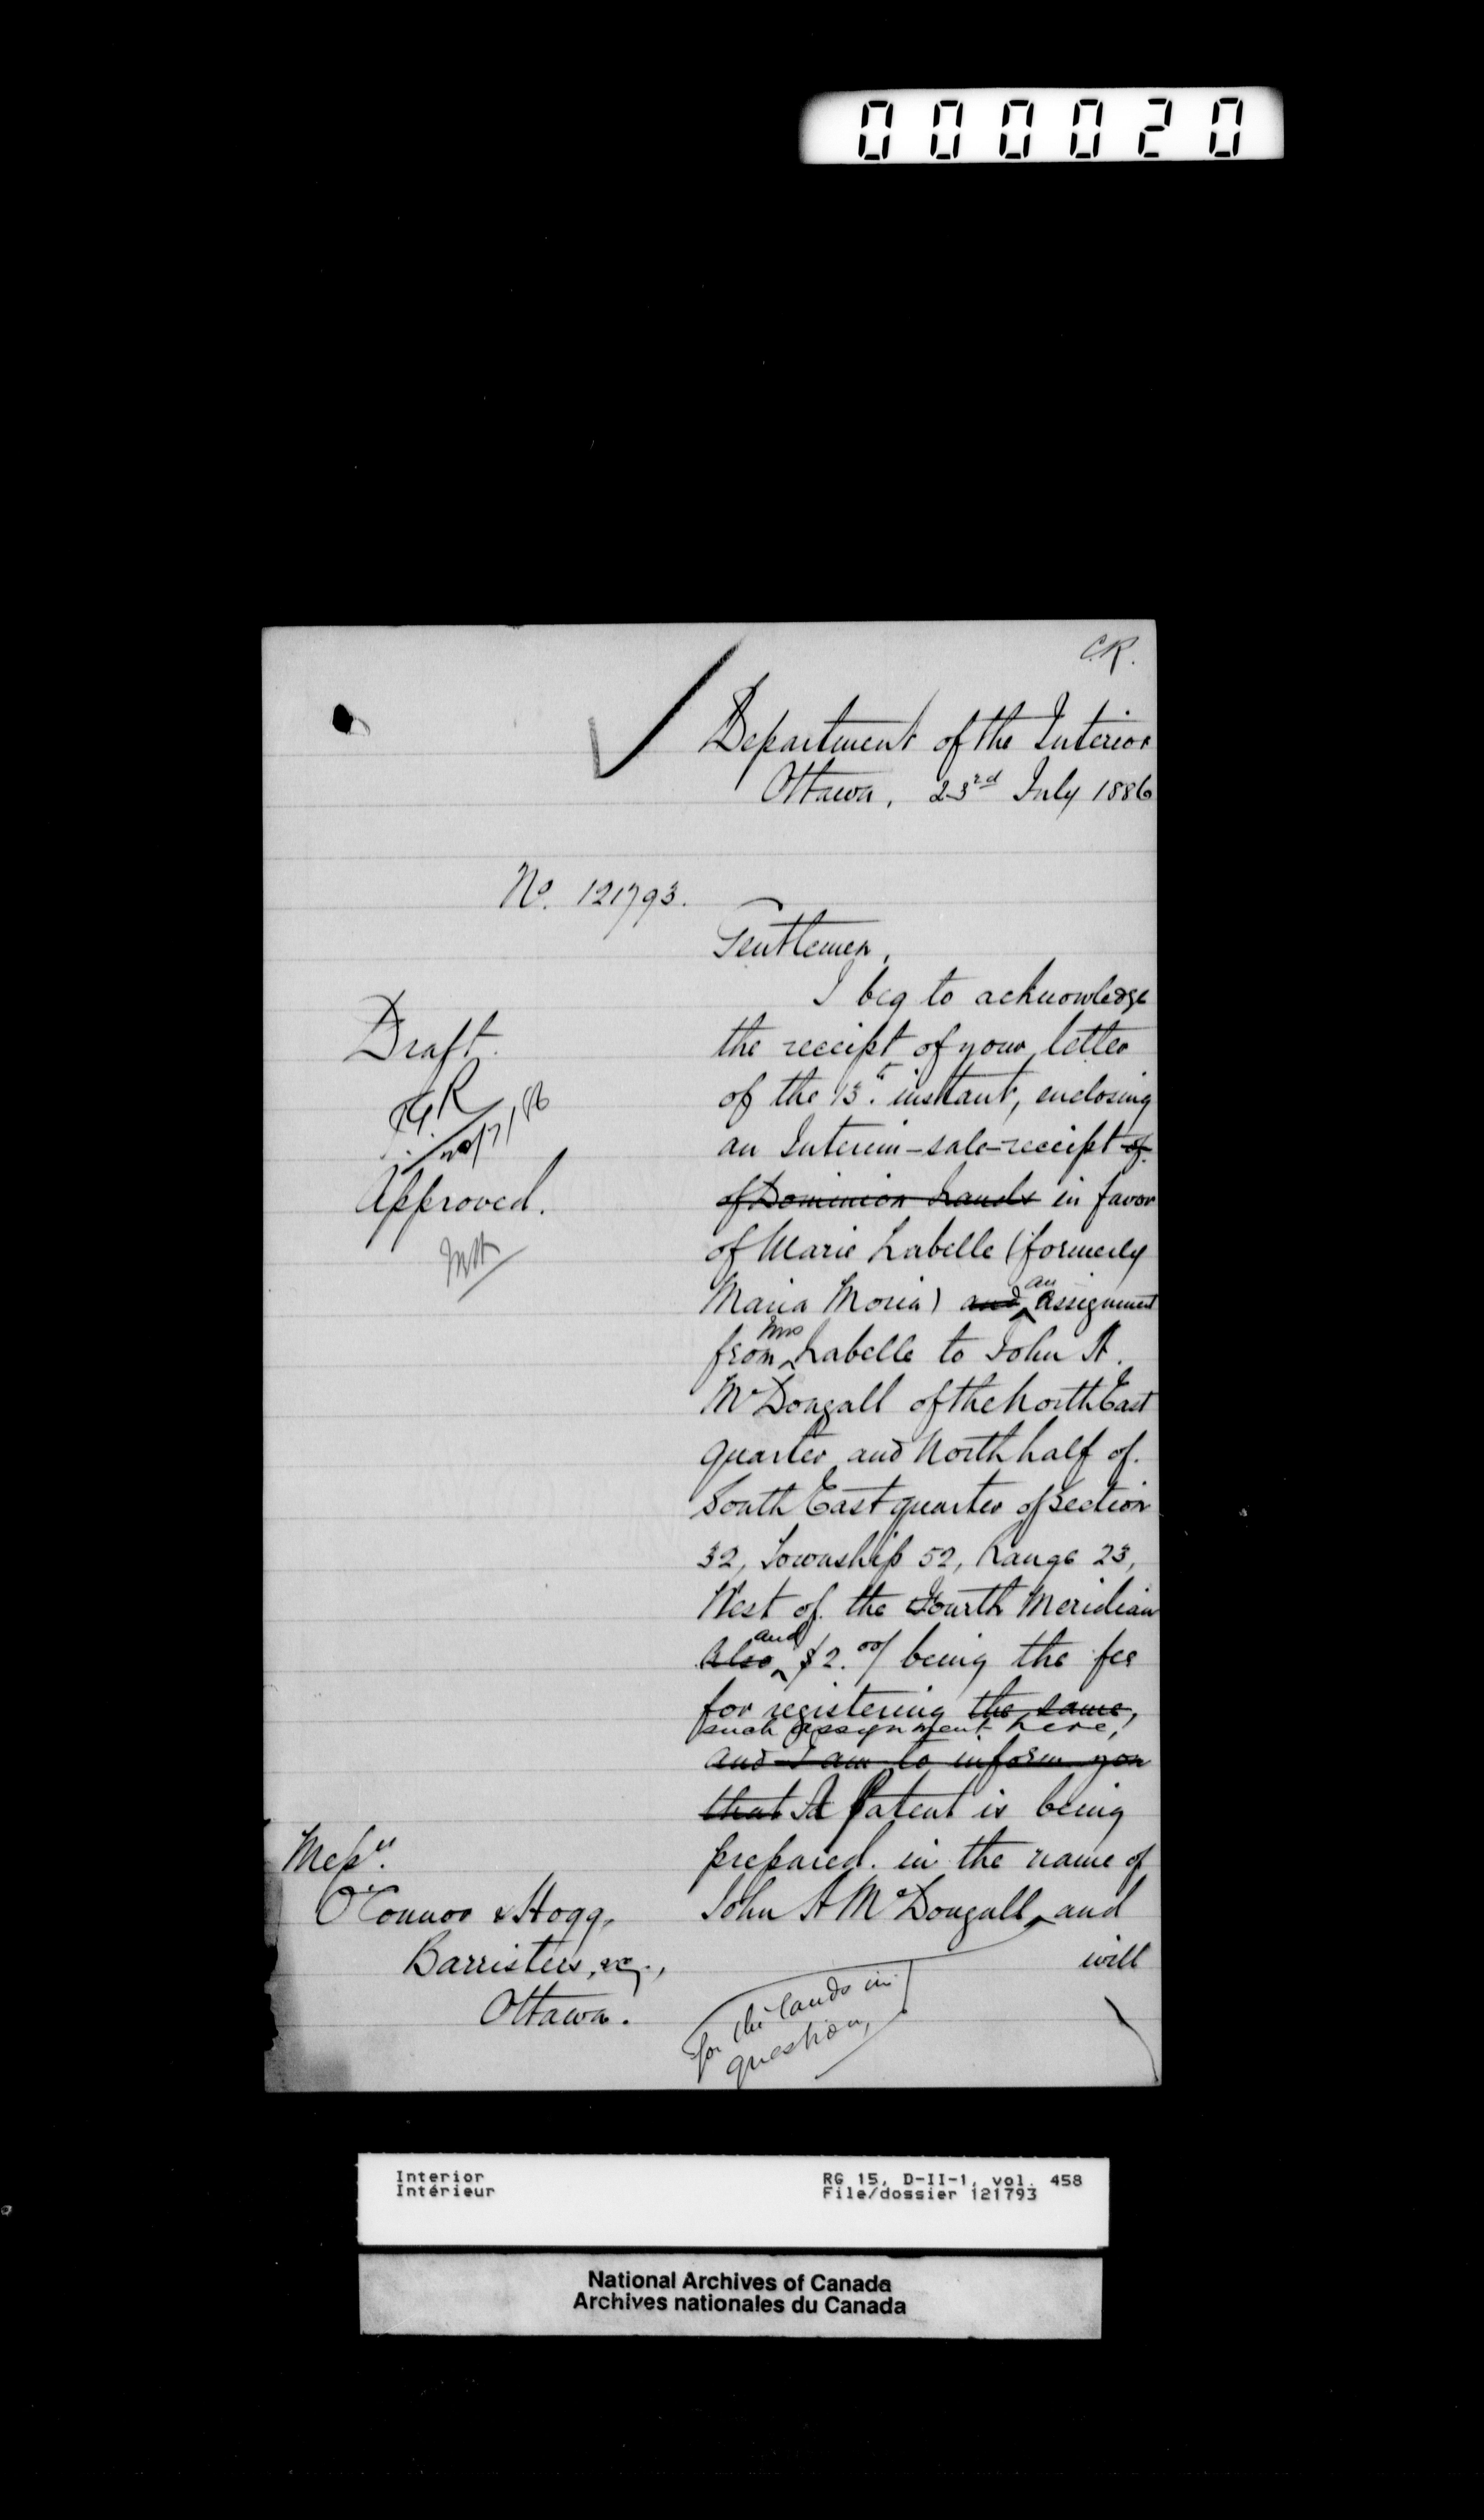 000020
C.R.
Department of the Interior
Ottawa, 23rd July 1886
No. 121793.
Gentlemen,
I beg to acknowledge
the receipt of your letter
of the 13th. instant, enclosing
an Interim-sale-receipt of
of Dominion Lands in favor
of Marie Labelle (formerly
Maria Moria) and an assignment
from Mrs Labelle to John A.
McDougall of the North East
quarter and North half of
South East quarter of Section
32, Township 52, Range 23,
West of the Fourth Meridian
Also and $2.00/ being the fee
for registering the same,
such assignment here,
and I am to inform you
that A Patent is being
prepared in the name of
John A McDougall and
for the lands in
question,
will
Draft.
Approved.
Messrs.
O'Connor & Hogg,
Barristers, &c.,
Ottawa.
Interior
Intérieur
RG 15, D-II-1, vol. 458
File/dossier 121793
National Archives of Canada
Archives nationales du Canada